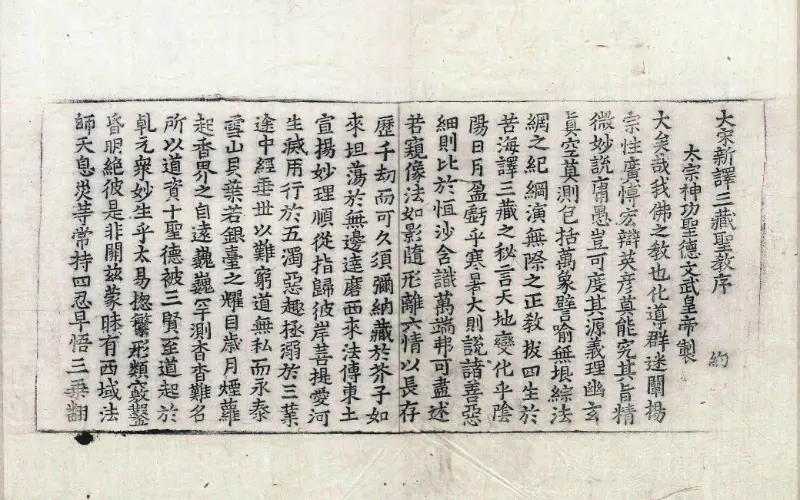 大宋新譯三藏聖教序 約
太宗神功聖德文武皇帝製
大矣哉我佛之教也化導群迷闡揚
宗性廣博宏辯英彥莫能究其旨精
微妙說庸愚豈可度其源義理幽玄
真空莫測包括萬象譬喻無垠綜法
網之紀綱演無際之正教拔四生於
苦海譯三藏之秘言天地變化乎陰
陽日月盈虧乎寒暑大則說諸善惡
細則比於恒沙含識萬端弗可盡述
若窺像法如影隨形離六情以長存
歷千劫而可久須彌納藏於芥子如
來坦蕩於無邊達磨西來法傳東土
宣揚妙理順從指歸彼岸菩提愛河
生滅用行於五濁惡趣拯溺於三業
途中經垂世以難窮道無私而永泰
雪山貝葉若銀臺之耀目歲月煙蘿
起香界之自遠巍巍罕測杳杳難名
所以道資十聖德被三賢至道起於
乹元衆妙生乎太易揔繁形類竅鑿
昏明絕彼是非開茲蒙昧有西域法
師天息災等常持四忍早悟三乘翻